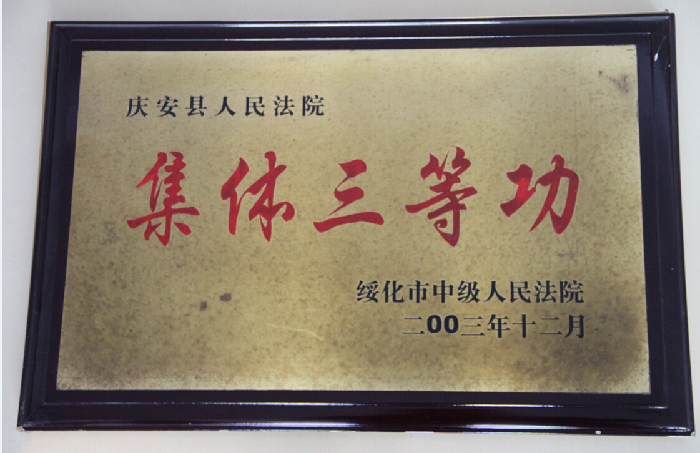 庆安县人民法院
集体三等功
绥化市中级人民法院
二00三年十二月